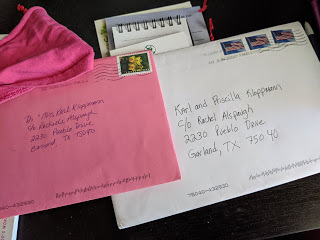 Dr. + Mrs. Karl Kloppmann
c/o Rachelle Alspaugh
2230 Pueblo Drive
Garland, TX 75040
Karl and Priscilla Kloppmann
c/o Rachel Alspaugh
2230 Pueblo Drive
Garland, TX 75040
75040-432930
75040-432930